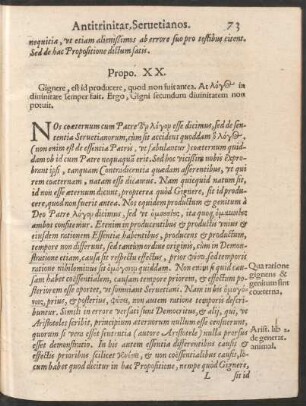 Antitrinitar, Seruetianos. 73
nequitia, vt etiam alienissimos ab errore suo pro testibus citent.
Sed de hac Propositione dictum satis.
Propo. XX.
Gignere, est id producere, quod non fuit antea. At λόγος in
diuinitate semper fuit. Ergo, Gigni secundum diuinitatem non
potuit.
NOs coæternum cum Patre λόγον esse dicimus, sed de sen-
tentia Seruetianorum, cum sit accidens quoddam ὁ λόγος
(non enim est de essentia Patris, vt fabulantur) coæternum quid-
dam ob id cum Patre nequaquã erit. Sed hoc vicissim nobis expro-
brant ipsi, tanquam Contradicentia quædam asserentibus, vt qui
rem coæternam, & genitam esse velimus. Nam quicquid natum sit,
id non esse æternum dicunt, propterea quod Gignere, sit id produ-
cere, quod non fuerit antea. Nos equidem productum & genitum à
Deo Patre λόγον dicimus, sed vt
ambos confitemur. Etenim in producentibus & productis
eiusdem rationem Essentiæ habentibus, producens & productum,
tempore non differunt, sed tantùm ordine originis, cùm in Demon-
stratione etiam, causa sit respectu effectus, prior
ratione nihilominus sit quiddam. Non enim si quid cau-
sam habet coessentialem, causam tempore priorem, & effectum po-
steriorem esse oportet, vt somniant Seruetiani. Nam in his
prius, & posterius, non autem ratione temporis describi-
buntur. Simili in errore versati sunt Democritus, & alij, qui, vt
Aristoteles scribit, principium æternorum nullum esse censuerunt,
quorum si vera esset sententia (autore Aristotele) nulla prorsus
esset demonstratio. In his autem essentia differentibus causis &
effectis prioribus scilicet & non coëssentialibus causis, lo-
cum habet quod dicitur in hac Propositione, nempe quòd Gignere,
L sit id
Qua ratione
gignens &
genitum sint
coæterna.
Arist. lib 2.
de generat.
animal.